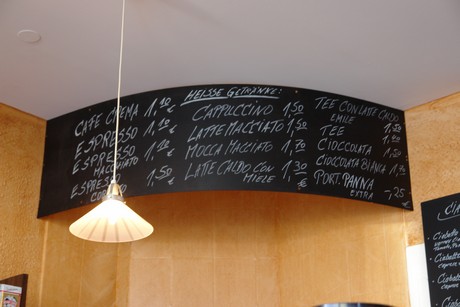 HEISSE GETRÄNKE:
CAFE CREMA 1,10 €
ESPRESSO 1,10
ESPRESSO MACCHIATO 1,20 €
ESPRESSO 1,50
CAPPUCCINO 1,50
LATTE MACCIATO 1,50
MOCCA MACCIATO 1,70
LATTE CALDO CON MIELE 1,30 €
TEE CON LATTE CALDO
TEE
CIOCCOLATA
CIOCCOLATA BIANCA
PORT. PANNA EXTRA -,25 €
Ciabatta
Ciabatta
Ciabatta